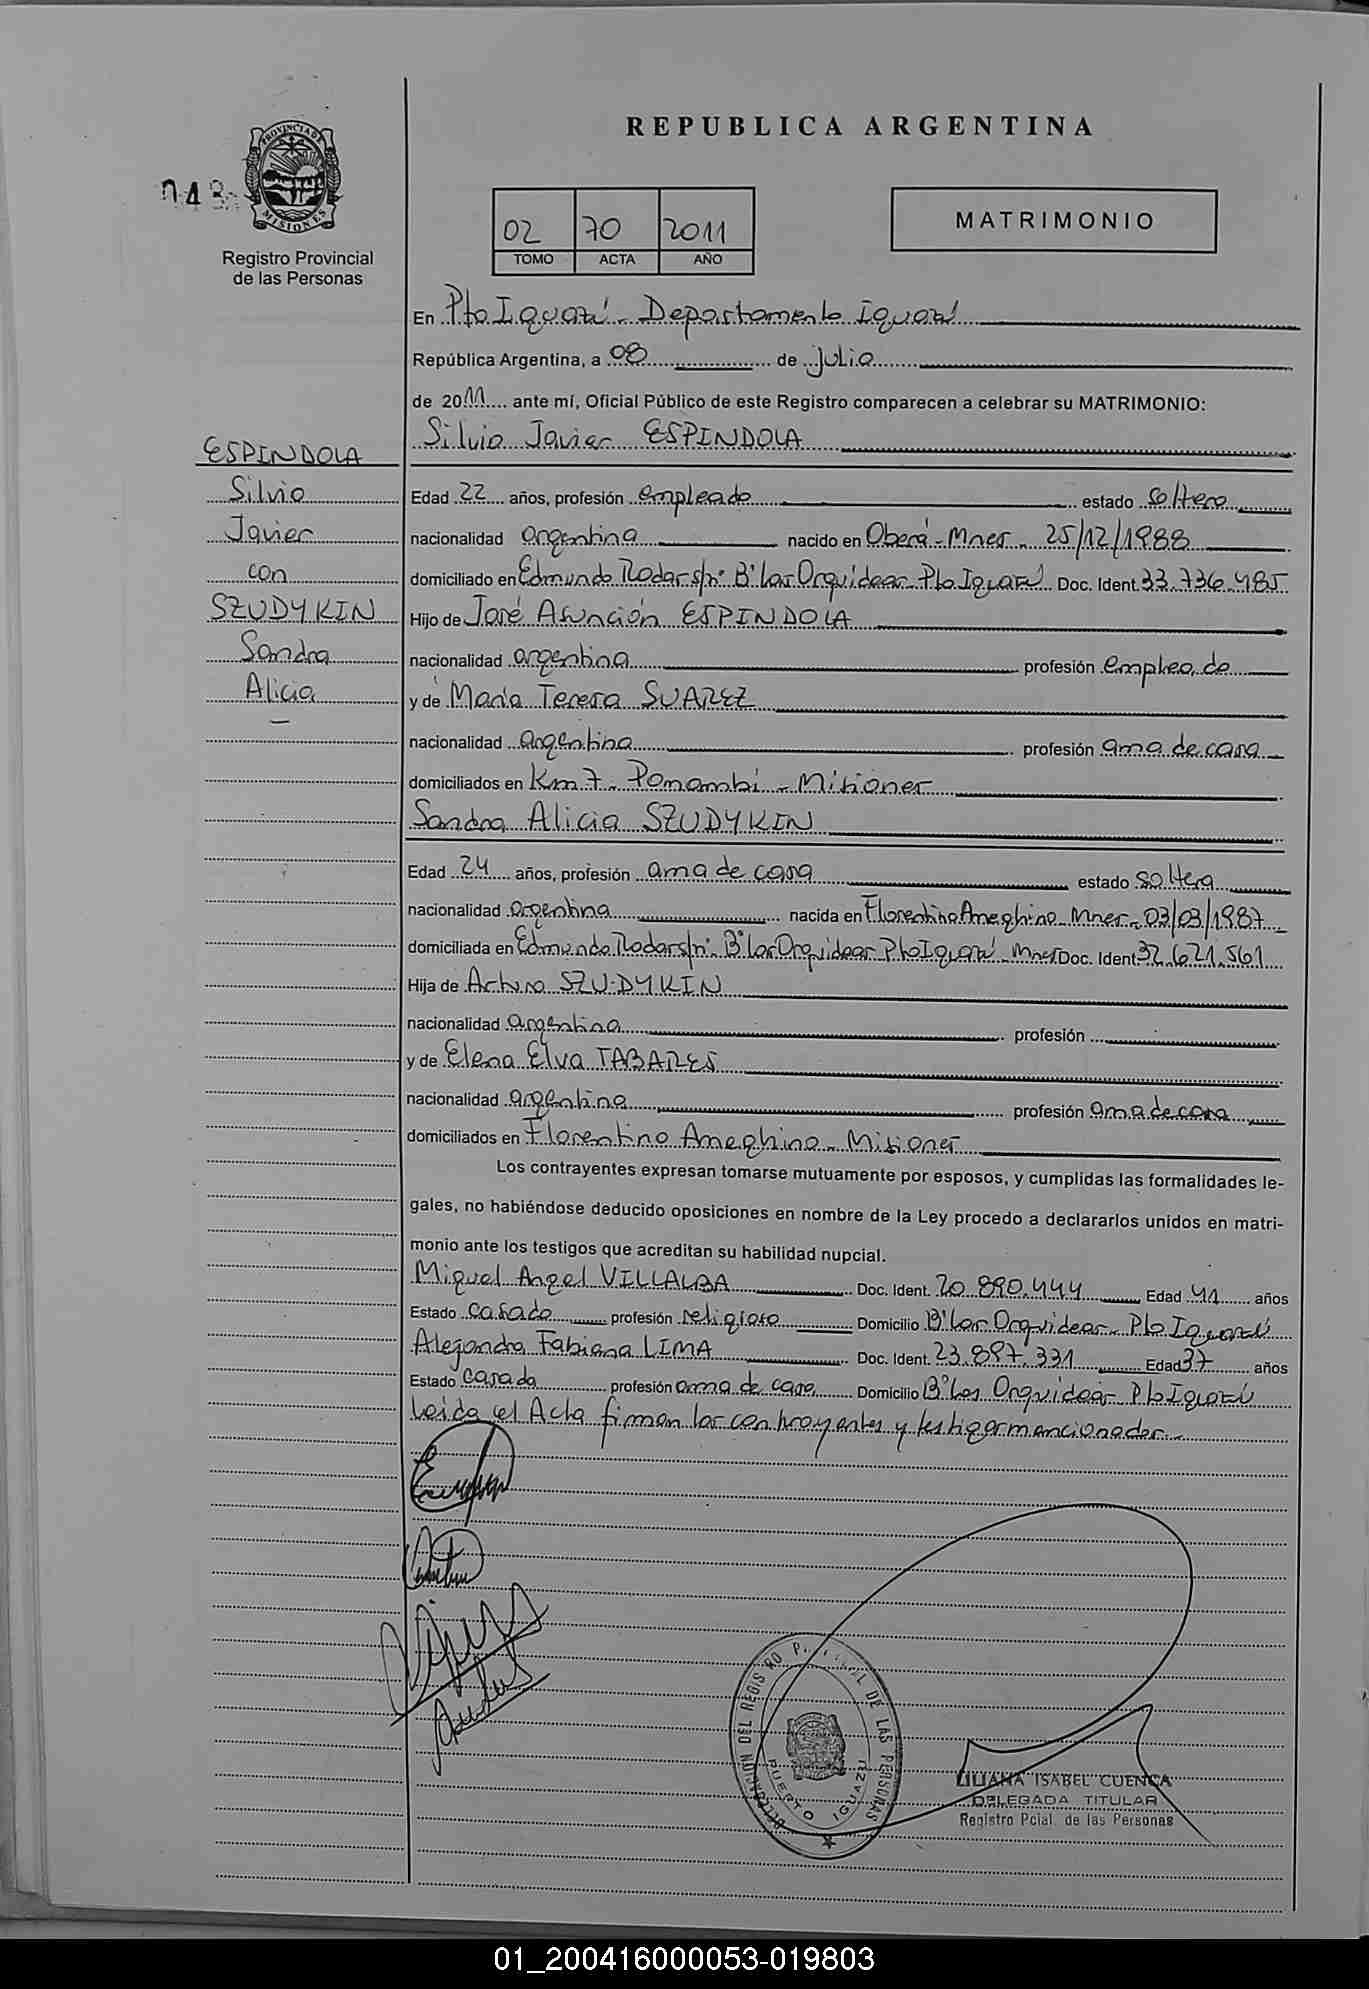 REPUBLICA ARGENTINA
PROVINCIA DE
MISIONES
Registro Provincial
de las Personas
02 70 2011
TOMO ACTA AÑO
MATRIMONIO
En Pto Iguazú - Departamento Iguazú
República Argentina, a 08 de julio
de 2011 ante mí, Oficial Público de este Registro comparecen a celebrar su MATRIMONIO:
Silvio Javier ESPINDOLA
ESPINDOLA
Silvio
Javier
con
SZUDYKIN
Sandra
Alicia
Edad 22 años, profesión empleado estado soltero
nacionalidad argentina nacido en Oberá - Mnes - 25/12/1988
domiciliado en Edmundo Rodas s/n° B° Las Orquídeas Pto Iguazú Doc. Ident. 33.736.485
Hijo de José Asunción ESPINDOLA
nacionalidad argentina profesión empleado
y de María Teresa SUAREZ
nacionalidad argentina profesión ama de casa
domiciliados en Km 7 - Panambí - Misiones
Sandra Alicia SZUDYKIN
Edad 24 años, profesión ama de casa estado soltera
nacionalidad argentina nacida en Florentino Ameghino - Mnes - 03/03/1987
domiciliada en Edmundo Rodas s/n° B° Las Orquídeas Pto Iguazú - Mnes Doc. Ident 32.621.561
Hija de Arturo SZUDYKIN
nacionalidad argentina profesión
y de Elena Elva TABARES
nacionalidad argentina profesión ama de casa
domiciliados en Florentino Ameghino - Misiones
Los contrayentes expresan tomarse mutuamente por esposos, y cumplidas las formalidades le-
gales, no habiéndose deducido oposiciones en nombre de la Ley procedo a declararlos unidos en matri-
monio ante los testigos que acreditan su habilidad nupcial.
Miguel Angel VILLALBA Doc. Ident. 20.890.444 Edad 41 años
Estado casado profesión religioso Domicilio B° Las Orquídeas - Pto Iguazú
Alejandra Fabiana LIMA Doc. Ident. 23.897.331 Edad 37 años
Estado casada profesión ama de casa Domicilio B° Las Orquídeas - Pto Iguazú
Leída el Acta firman los contrayentes y testigos mencionados.-
DELEGACION DEL REGISTRO DE LAS PERSONAS
PUERTO IGUAZU
LILIANA ISABEL CUENCA
DELEGADA TITULAR
Registro Pcial. de las Personas
01_200416000053-019803